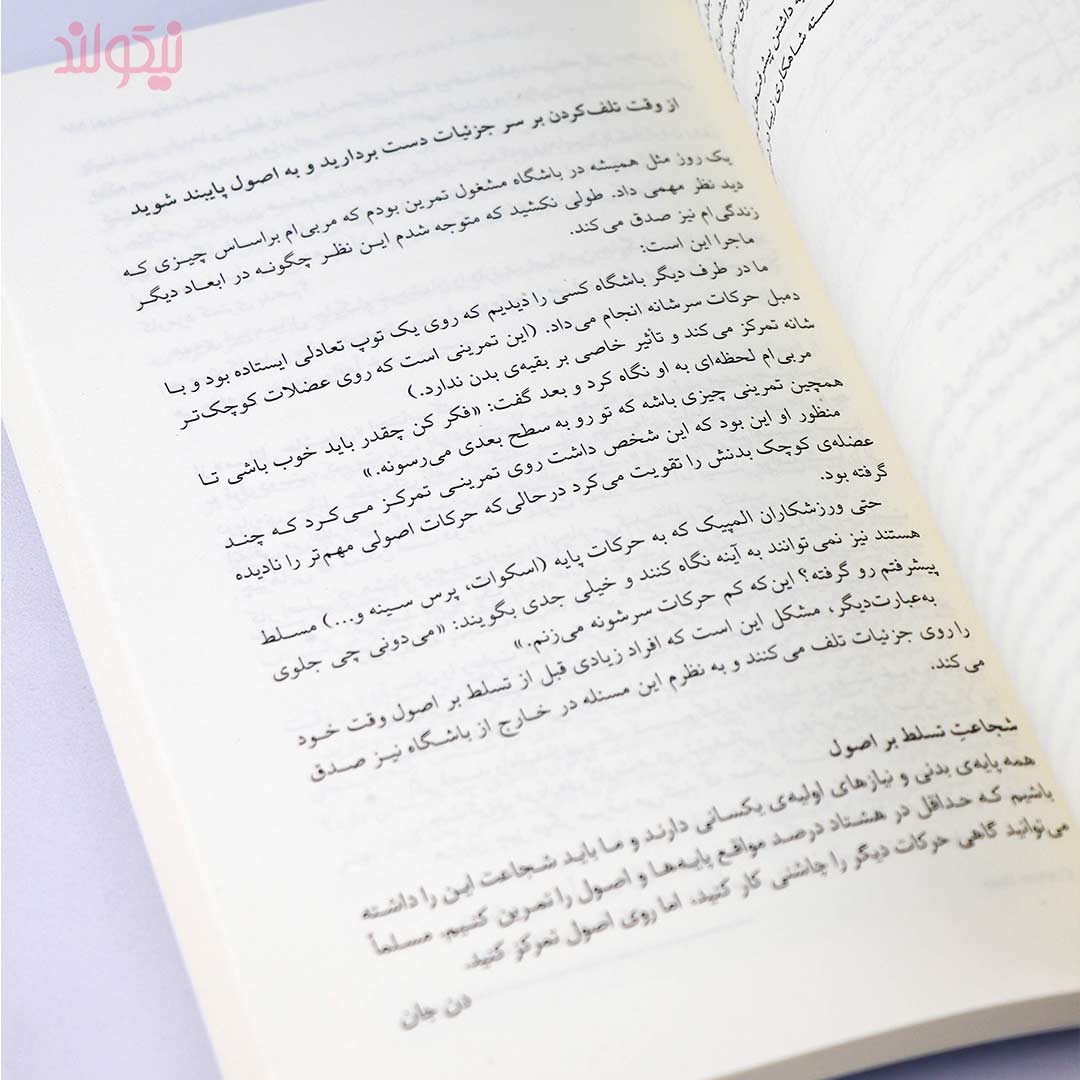 نیکولند
از وقت تلف‌کردن بر سر جزئیات دست بردارید و به اصول پایبند شوید
یک روز مثل همیشه در باشگاه مشغول تمرین بودم که مربی‌ام براساس چیزی که
دید نظر مهمی داد. طولی نکشید که متوجه شدم این نظر چگونه در ابعاد دیگر
زندگی‌ام نیز صدق می‌کند.
ماجرا این است:
ما در طرف دیگر باشگاه کسی را دیدیم که روی یک توپ تعادلی ایستاده بود و با
دمبل حرکات سرشانه انجام می‌داد. (این تمرینی است که روی عضلات کوچک‌تر
شانه تمرکز می‌کند و تأثیر خاصی بر بقیه‌ی بدن ندارد.)
مربی‌ام لحظه‌ای به او نگاه کرد و بعد گفت: «فکر کن چقدر باید خوب باشی تا
همچین تمرینی چیزی باشه که تو رو به سطح بعدی می‌رسونه.»
منظور او این بود که این شخص داشت روی تمرینی تمرکز می‌کرد که چند
عضله‌ی کوچک بدنش را تقویت می‌کرد درحالی‌که حرکات اصولی مهم‌تر را نادیده
گرفته بود.
حتی ورزشکاران المپیک که به حرکات پایه (اسکوات، پرس سینه و...) مسلط
هستند نیز نمی‌توانند به آینه نگاه کنند و خیلی جدی بگویند: «می‌دونی چی جلوی
پیشرفتم رو گرفته؟ این‌که کم حرکات سرشونه می‌زنم.»
به‌عبارت‌دیگر، مشکل این است که افراد زیادی قبل از تسلط بر اصول وقت خود
را روی جزئیات تلف می‌کنند و به نظرم این مسئله در خارج از باشگاه نیز صدق
می‌کند.
شجاعتِ تسلط بر اصول
همه پایه‌ی بدنی و نیازهای اولیه‌ی یکسانی دارند و ما باید شجاعت این را داشته
باشیم که حداقل در هشتاد درصد مواقع پایه‌ها و اصول را تمرین کنیم. مسلماً
می‌توانید گاهی حرکات دیگر را چاشنی کار کنید، اما روی اصول تمرکز کنید.
دن جان